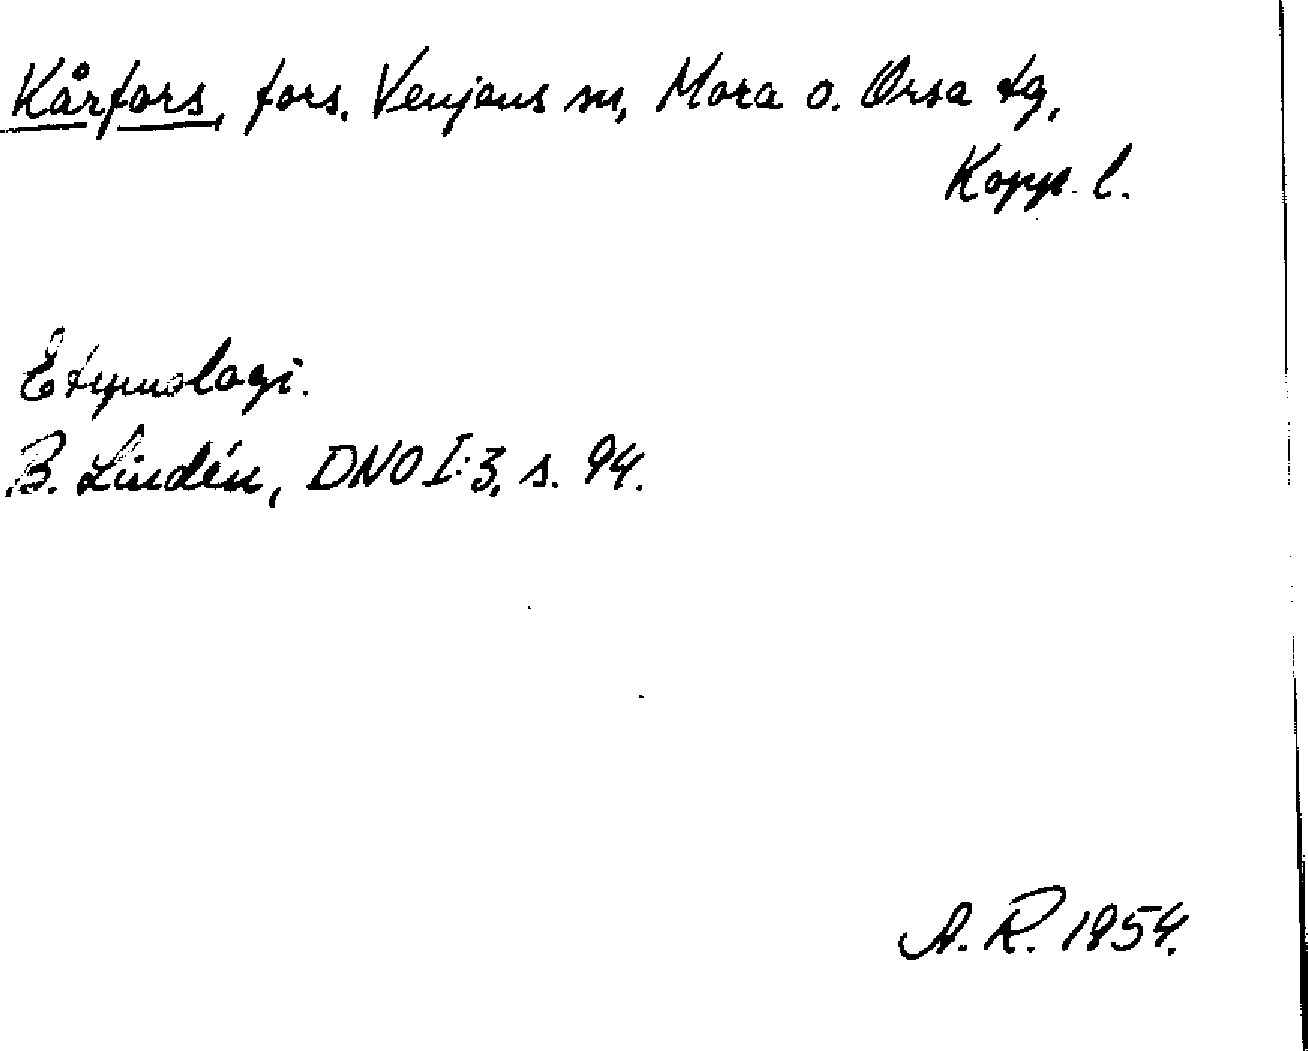 Kårfors, fors. Venjans sn, Mora o. Orsa tg,
Kopp. l.
Etymologi.
B. Lindén, DNO I:3, s. 94.
A. R. 1954.